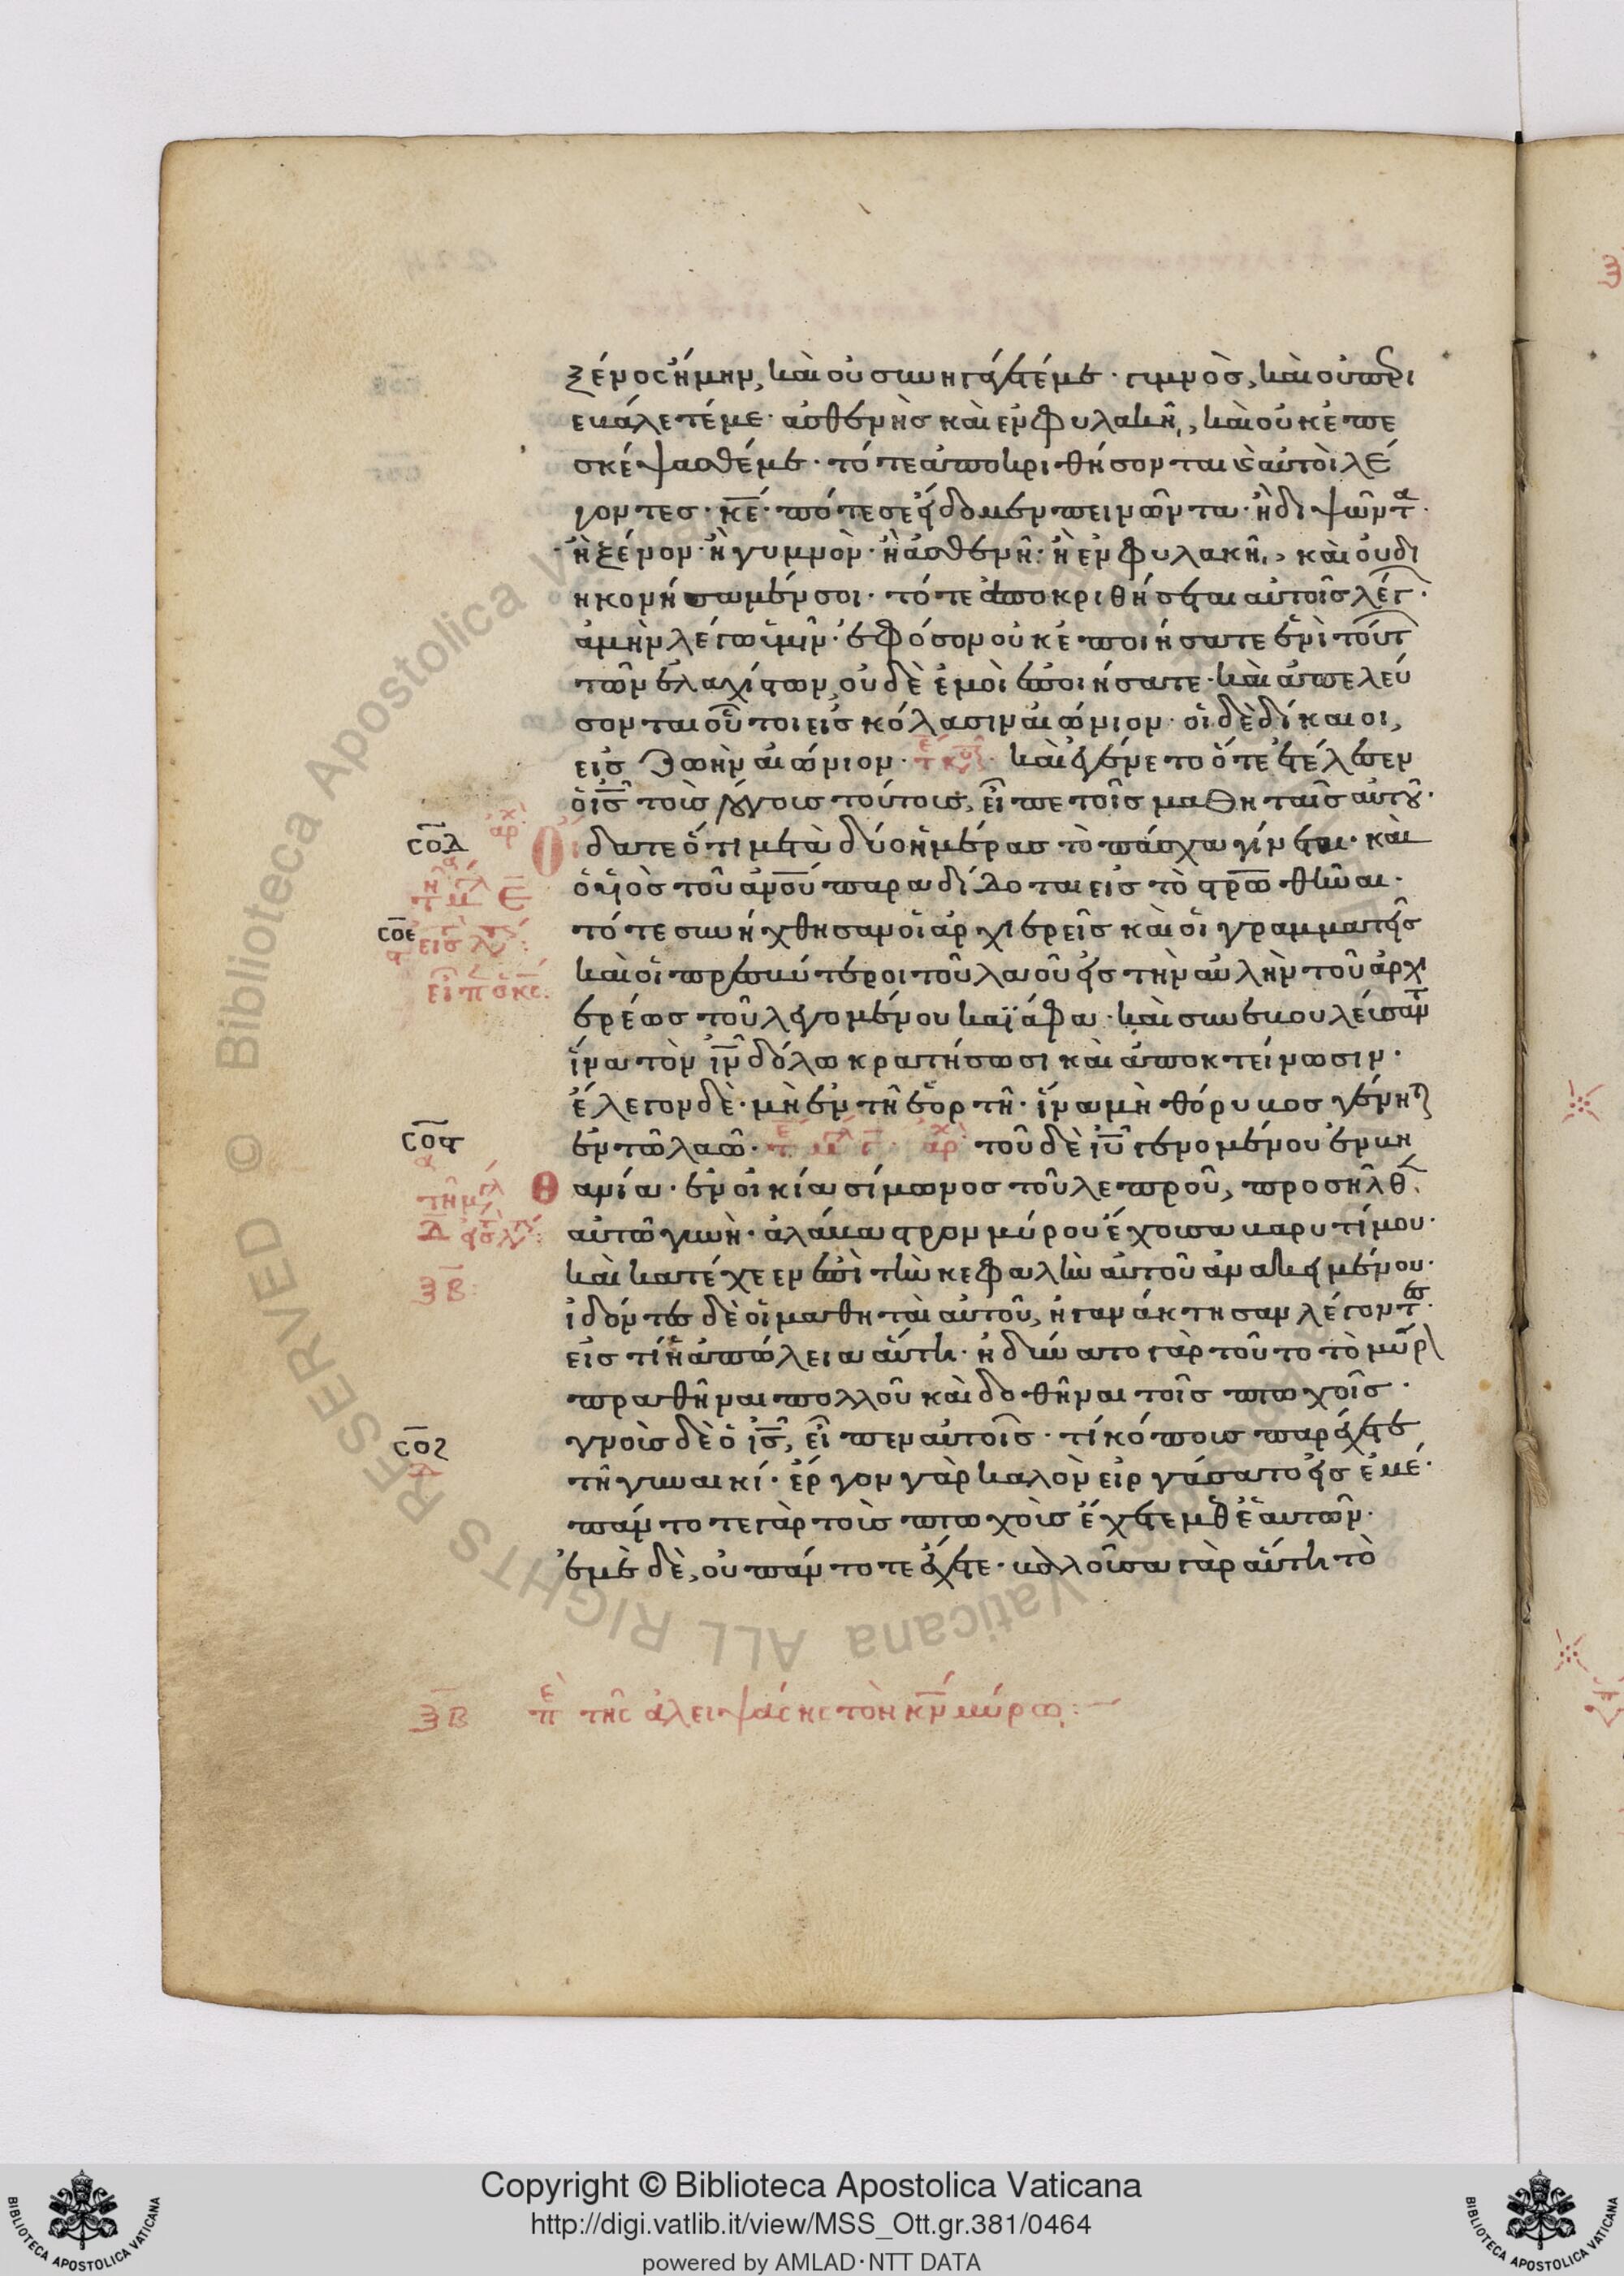 ξένος ἤμην, καὶ οὐ συνηγάγετέ με· γυμνὸς, καὶ οὐ περι
εβάλετέ με· ἀσθενὴς καὶ ἐν φυλακῆ, καὶ οὐκ ἐπε
σκέψασθέ με· τότε ἀποκριθήσονται καὶ αὐτοὶ λέ
γοντες· κε̅· πότε σε εἴδομεν πεινῶντα· ἢ διψῶντα·
ἢ ξένον· ἢ γυμνὸν· ἢ ἀσθενῆ· ἢ ἐν φυλακῆ, καὶ οὐ δι
ηκονήσαμέν σοι· τότε ἀποκριθήσεται αὐτοῖς λέγ·
ἀμὴν λέγω ὑμῖν· ἐφόσον οὐκ ἐποιήσατε ἑνὶ τούτ
τῶν ἐλαχίστων, οὐδὲ ἐμοὶ ἐποιήσατε· καὶ ἀπελεύ
σονται οὗτοι εἰς κόλασιν αἰώνιον· οἱ δὲ δίκαιοι,
εἰς ζωὴν αἰώνιον· καὶ ἐγένετο ὅτε ἐτέλεσεν
ὁ ις̅ τοὺς λόγους τούτους, εἶπε τοῖς μαθηταῖς αὐτοῦ·
σοδ Οἴδατε ὅτι μετὰ δύο ἡμέρας τὸ πάσχα γίνεται· καὶ
ὁ υἱὸς τοῦ ανου̅ παραδίδοται εἰς τὸ στρω̅θῆναι·
σοε τότε συνήχθησαν οἱ ἀρχιερεῖς καὶ οἱ γραμματεῖς
καὶ οἱ πρεσβύτεροι τοῦ λαοῦ εἰς τὴν αὐλὴν τοῦ ἀρχι
ερέως τοῦ λεγομένου καϊάφα· καὶ συνεβουλεύσαντ
ἵνα τὸν ιν̅ δόλω κρατήσωσι καὶ ἀποκτείνωσιν·
ἔλεγον δὲ· μὴ ἐν τῆ ἑορτῆ· ἵνα μὴ θόρυβος γένητ
σοϛ ἐν τῶ λαῶ· τοῦ δὲ ιυ̅ γενομένου ἐν βη
θανία· ἐν οἰκία σίμωνος τοῦ λεπροῦ, προσῆλθ
αὐτῶ γυνὴ· ἀλάβαστρον μύρου ἔχουσα βαρυτίμου·
ξβ καὶ κατέχεεν ἐπὶ τὴν κεφαλὴν αὐτοῦ ἀνακειμένου·
ἰδόντες δὲ οἱ μαθηταὶ αὐτοῦ, ἠγανάκτησαν λέγοντες·
εἰς τί ἡ ἀπώλεια αὕτη· ἠδύνατο γὰρ τοῦτο τὸ μύρ
πραθῆναι πολλοῦ καὶ δοθῆναι τοῖς πτωχοῖς·
σοζ γνοὺς δὲ ὁ ις̅, εἶπεν αὐτοῖς· τί κόπους παρέχετε
τῆ γυναικί· ἔργον γὰρ καλὸν εἰργάσατο εἰς ἐμέ·
πάντοτε γὰρ τοὺς πτωχοὺς ἔχετε μεθ' ἑαυτῶν·
ἐμὲ δὲ, οὐ πάντοτε ἔχετε· βαλοῦσα γὰρ αὕτη τὸ
ξβ πε τῆς ἀλειψάσης τὸν κν̅ μύρω:
Copyright © Biblioteca Apostolica Vaticana
http://digi.vatlib.it/view/MSS_Ott.gr.381/0464
powered by AMLAD·NTT DATA